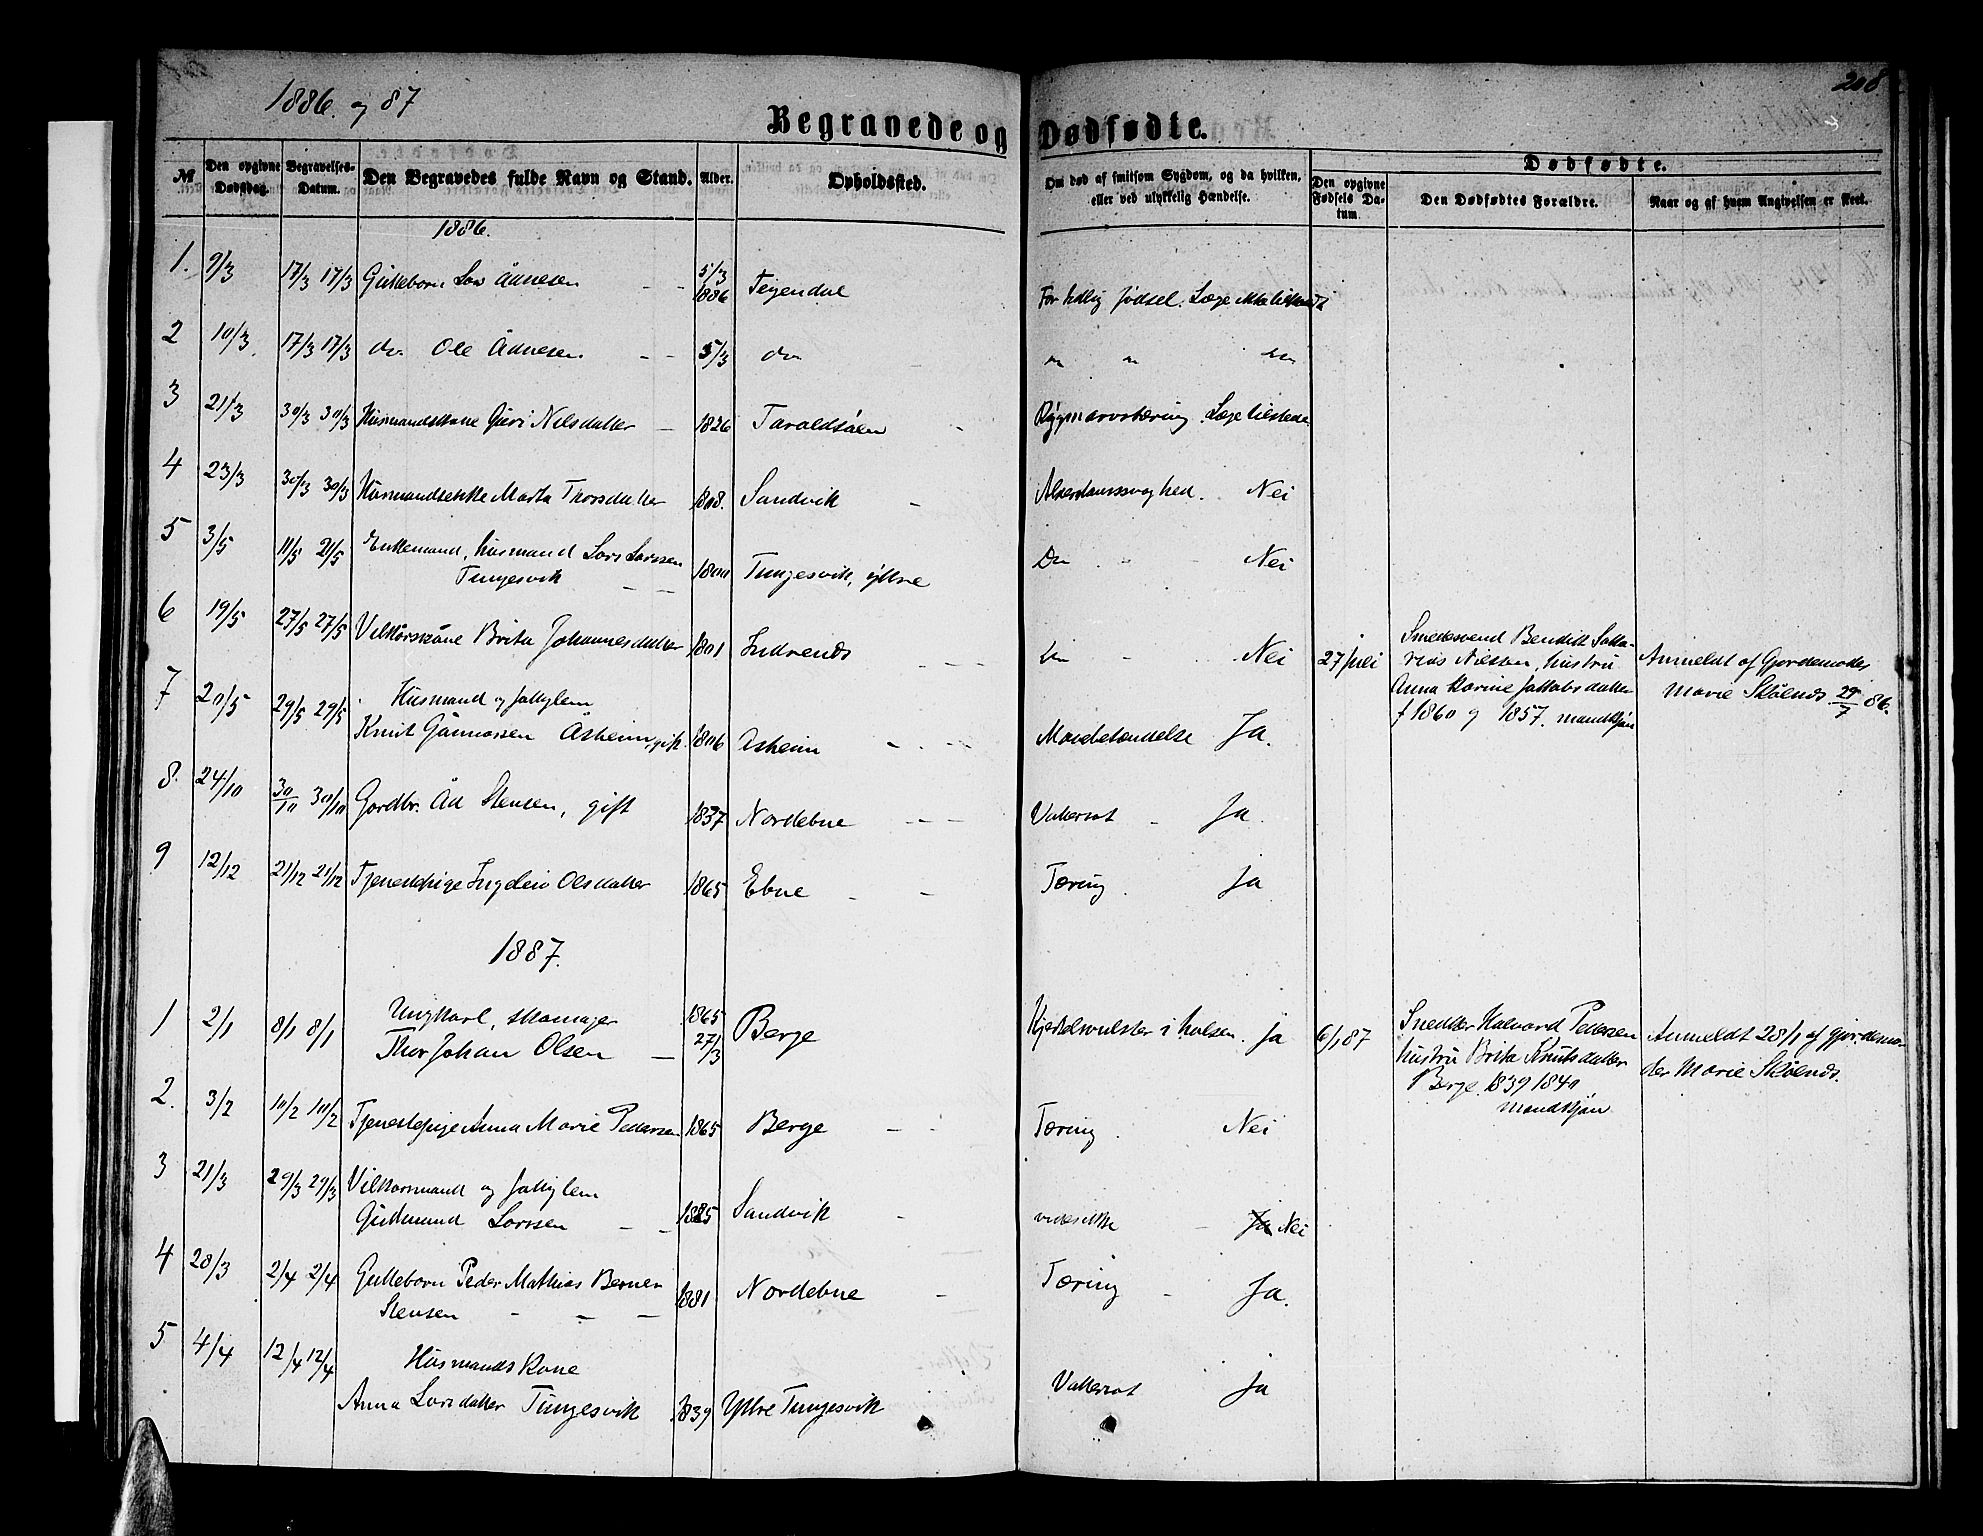 1886. og 87
208
Begravede og Dødfødte.
Dødfødte.
№
Den opgivne Dødsdag.
Begravelses-Datum.
Den Begravedes fulde Navn og Stand.
Alder.
Opholdssted.
Om død af smitsom Sygdom, og da hvilken,
eller ved ulykkelig Hændelse.
Den opgivne Fødsels Da-tum.
Den Dødfødtes Forældre.
Naar og af hvem Angivelsen er skeet.
1886.
1. 9/3 17/3 17/3 Guttebarn Lars Ådnesen 5/3 1886 Teigendal For tidlig fødsel. Læge
2 10/3 17/3 17/3 do Ole Ådnesen 5/3 do " " do
3 21/3 30/3 30/3 Husmandskone Guri Nilsdatter 1826 Taraldsøien Rygmarvstæring. Læge tilstede
4 23/3 30/3 30/3 Husmandsenke Marta Thorsdatter 1808. Sandvik Alderdomssvaghed. Nei
5 3/5 11/5 21/5 Enkemand, husmand Lars Larssen
Tungesvik 1800 Tungesvik, ytre Do Nei
6 19/5 27/5 27/5 Vilkårskone Brita Johannesdatter 1801 Indrenes do Nei
27 juli Smedesvend Benedikt Sakka-
rias Nielsen, hustru
Anna Karine Jakkobsdatter
f 1860 og 1857. mandkjøn
Anmeldt af Gjordemoder
Marie Skålnes. 29/7 86.
7 20/5 29/5 29/5 Husmand og fattiglem
Knut Gunnarsen Åsheim, gift 1806 Åsheim Mavebetændelse Ja.
8. 24/10 30/10 30/10 Gardbr. Åd Stensen, gift 1837 Nordebue Vattersot Ja.
9 12/12 21/12 21/12 Tjenestepige Ingeleiv Olsdatter 1865 Ebne Tæring. Ja
1887.
1 2/1 8/1 8/1 Ungkarl, skomager
Thor Johan Olsen 1865 27/3 Berge Kjertelsvulster i halsen. Ja
6/1 87 Snedker Halvard Pedersen
hustru Brita Knutsdatter
Berge. 1839 1840
mandkjøn
Anmeldt 28/1 af gjordemo-
der Marie Skålnes.
2. 3/2 10/2 10/2 Tjenestepige Anna Marie Pedersen 1865 Berge Tæring. Nei
3 21/3 29/3 29/3 Vilkårsmand og fattiglem
Gudmund Larssen Sandvik vides ikke Ja Nei
4 28/3 2/4 2/4 Guttebarn Peder Mathias Berner
Stensen 1881 Nordebue Tæring Ja.
5 4/4 12/4 12/4 Husmands Kone
Anna Larsdatter Tungesvik 1839 Ytre Tungesvik Vattersot Ja